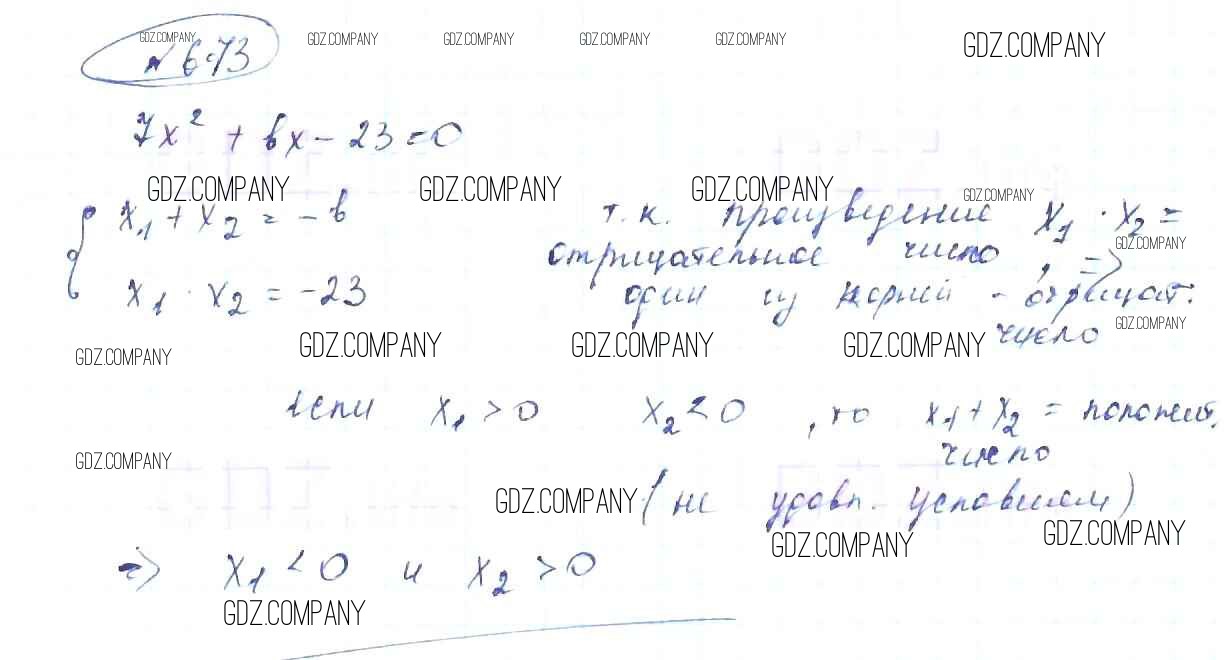 GDZ.COMPANY GDZ.COMPANY GDZ.COMPANY GDZ.COMPANY GDZ.COMPANY GDZ.COMPANY
№ 673
7x² + 6x - 23 = 0
GDZ.COMPANY GDZ.COMPANY GDZ.COMPANY GDZ.COMPANY
x₁ + x₂ = -6 т.к. произведение x₁ · x₂ =
GDZ.COMPANY
отрицательное число, =>
x₁ · x₂ = -23 один из корней - отрицат.
число GDZ.COMPANY
GDZ.COMPANY GDZ.COMPANY GDZ.COMPANY GDZ.COMPANY
если x₁ > 0 x₂ < 0, то x₁ + x₂ = положит.
число
GDZ.COMPANY
GDZ.COMPANY (не удовл. условиям)
GDZ.COMPANY GDZ.COMPANY
=> x₁ < 0 и x₂ > 0
GDZ.COMPANY